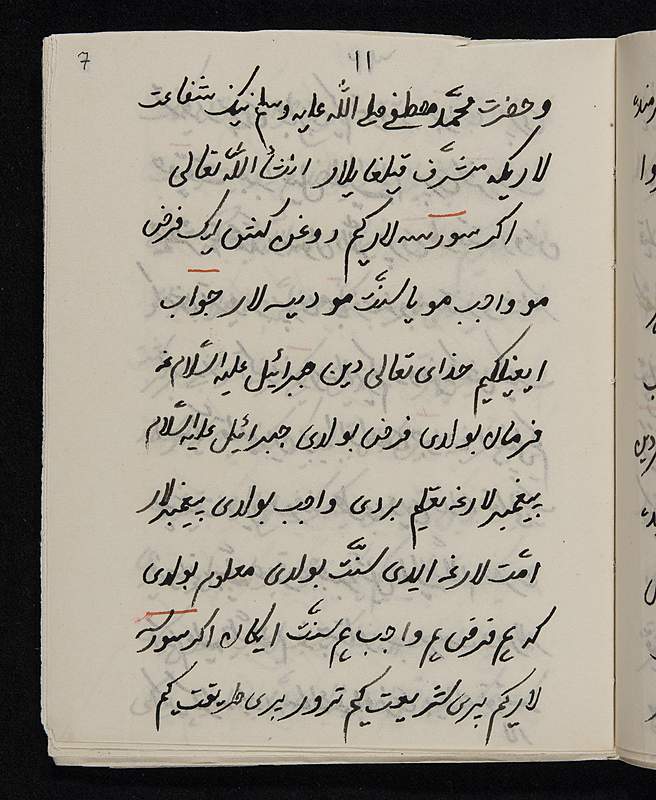 7
۱۱
و حضرت محمّد مصطفی صلی اللّه علیه وسلم نینک شفاعت
لاریکه مشرّف قیلغایلار انشأ اللّه تعالی
اکر سورسه لارکیم روغن کشی ایرک فرض
مو واجب مو یا سنّت مو دیسه لار جواب
ایغیلکیم خدای تعالی دین جبرائیل علیه السّلام غه
فرمان بولدی فرض بولدی جبرائیل علیه السّلام
پیغمبرلارغه تعلیم بردی واجب بولدی پیغمبرلار
امّت لارغه ایدی سنّت بولدی معلوم بولدی
که هم فرض هم واجب هم سنّت ایکان اکر سورسه
لارکیم پیری شریعت کیم ترور پیری طریقت کیم